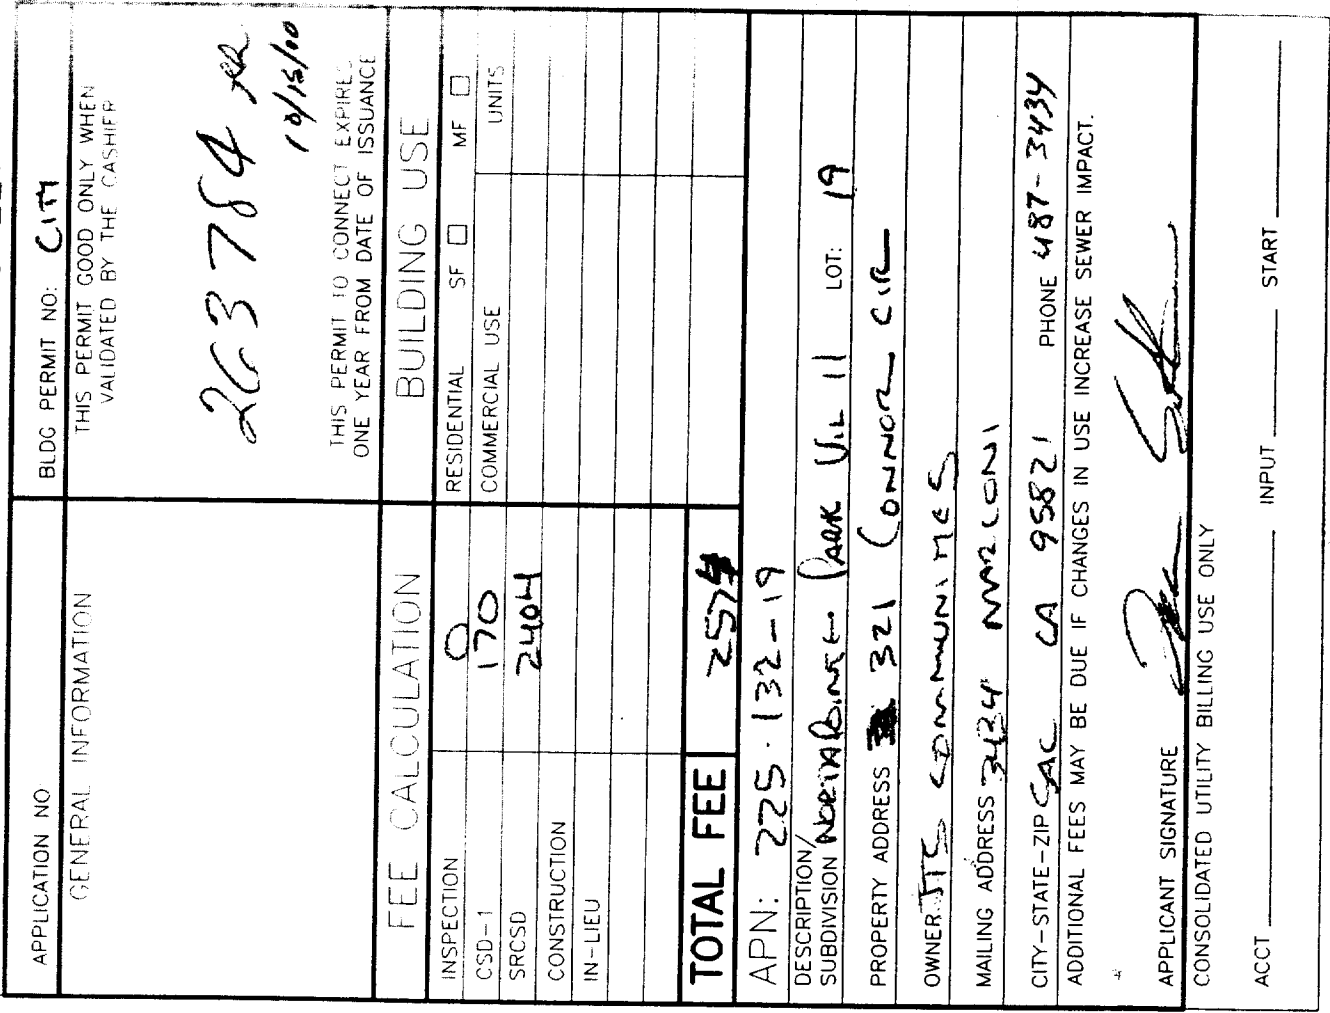 APPLICATION NO
BLDG PERMIT NO: CITY
GENERAL INFORMATION
THIS PERMIT GOOD ONLY WHEN
VALIDATED BY THE CASHIER
263784
10/15/00
THIS PERMIT TO CONNECT EXPIRES
ONE YEAR FROM DATE OF ISSUANCE
FEE CALCULATION
BUILDING USE
INSPECTION 0
RESIDENTIAL SF MF
CSD-1 170
COMMERCIAL USE UNITS
SRCSD 2404
CONSTRUCTION
IN-LIEU
TOTAL FEE 2574
APN: 225-132-19
DESCRIPTION/
SUBDIVISION PARK VIL 11 LOT: 19
PROPERTY ADDRESS 321 CONNOR CIR
OWNER JTS COMMUNITIES
MAILING ADDRESS 3434 MARCONI
CITY-STATE-ZIP SAC CA 95821 PHONE 487-3434
ADDITIONAL FEES MAY BE DUE IF CHANGES IN USE INCREASE SEWER IMPACT.
APPLICANT SIGNATURE
CONSOLIDATED UTILITY BILLING USE ONLY
ACCT INPUT START